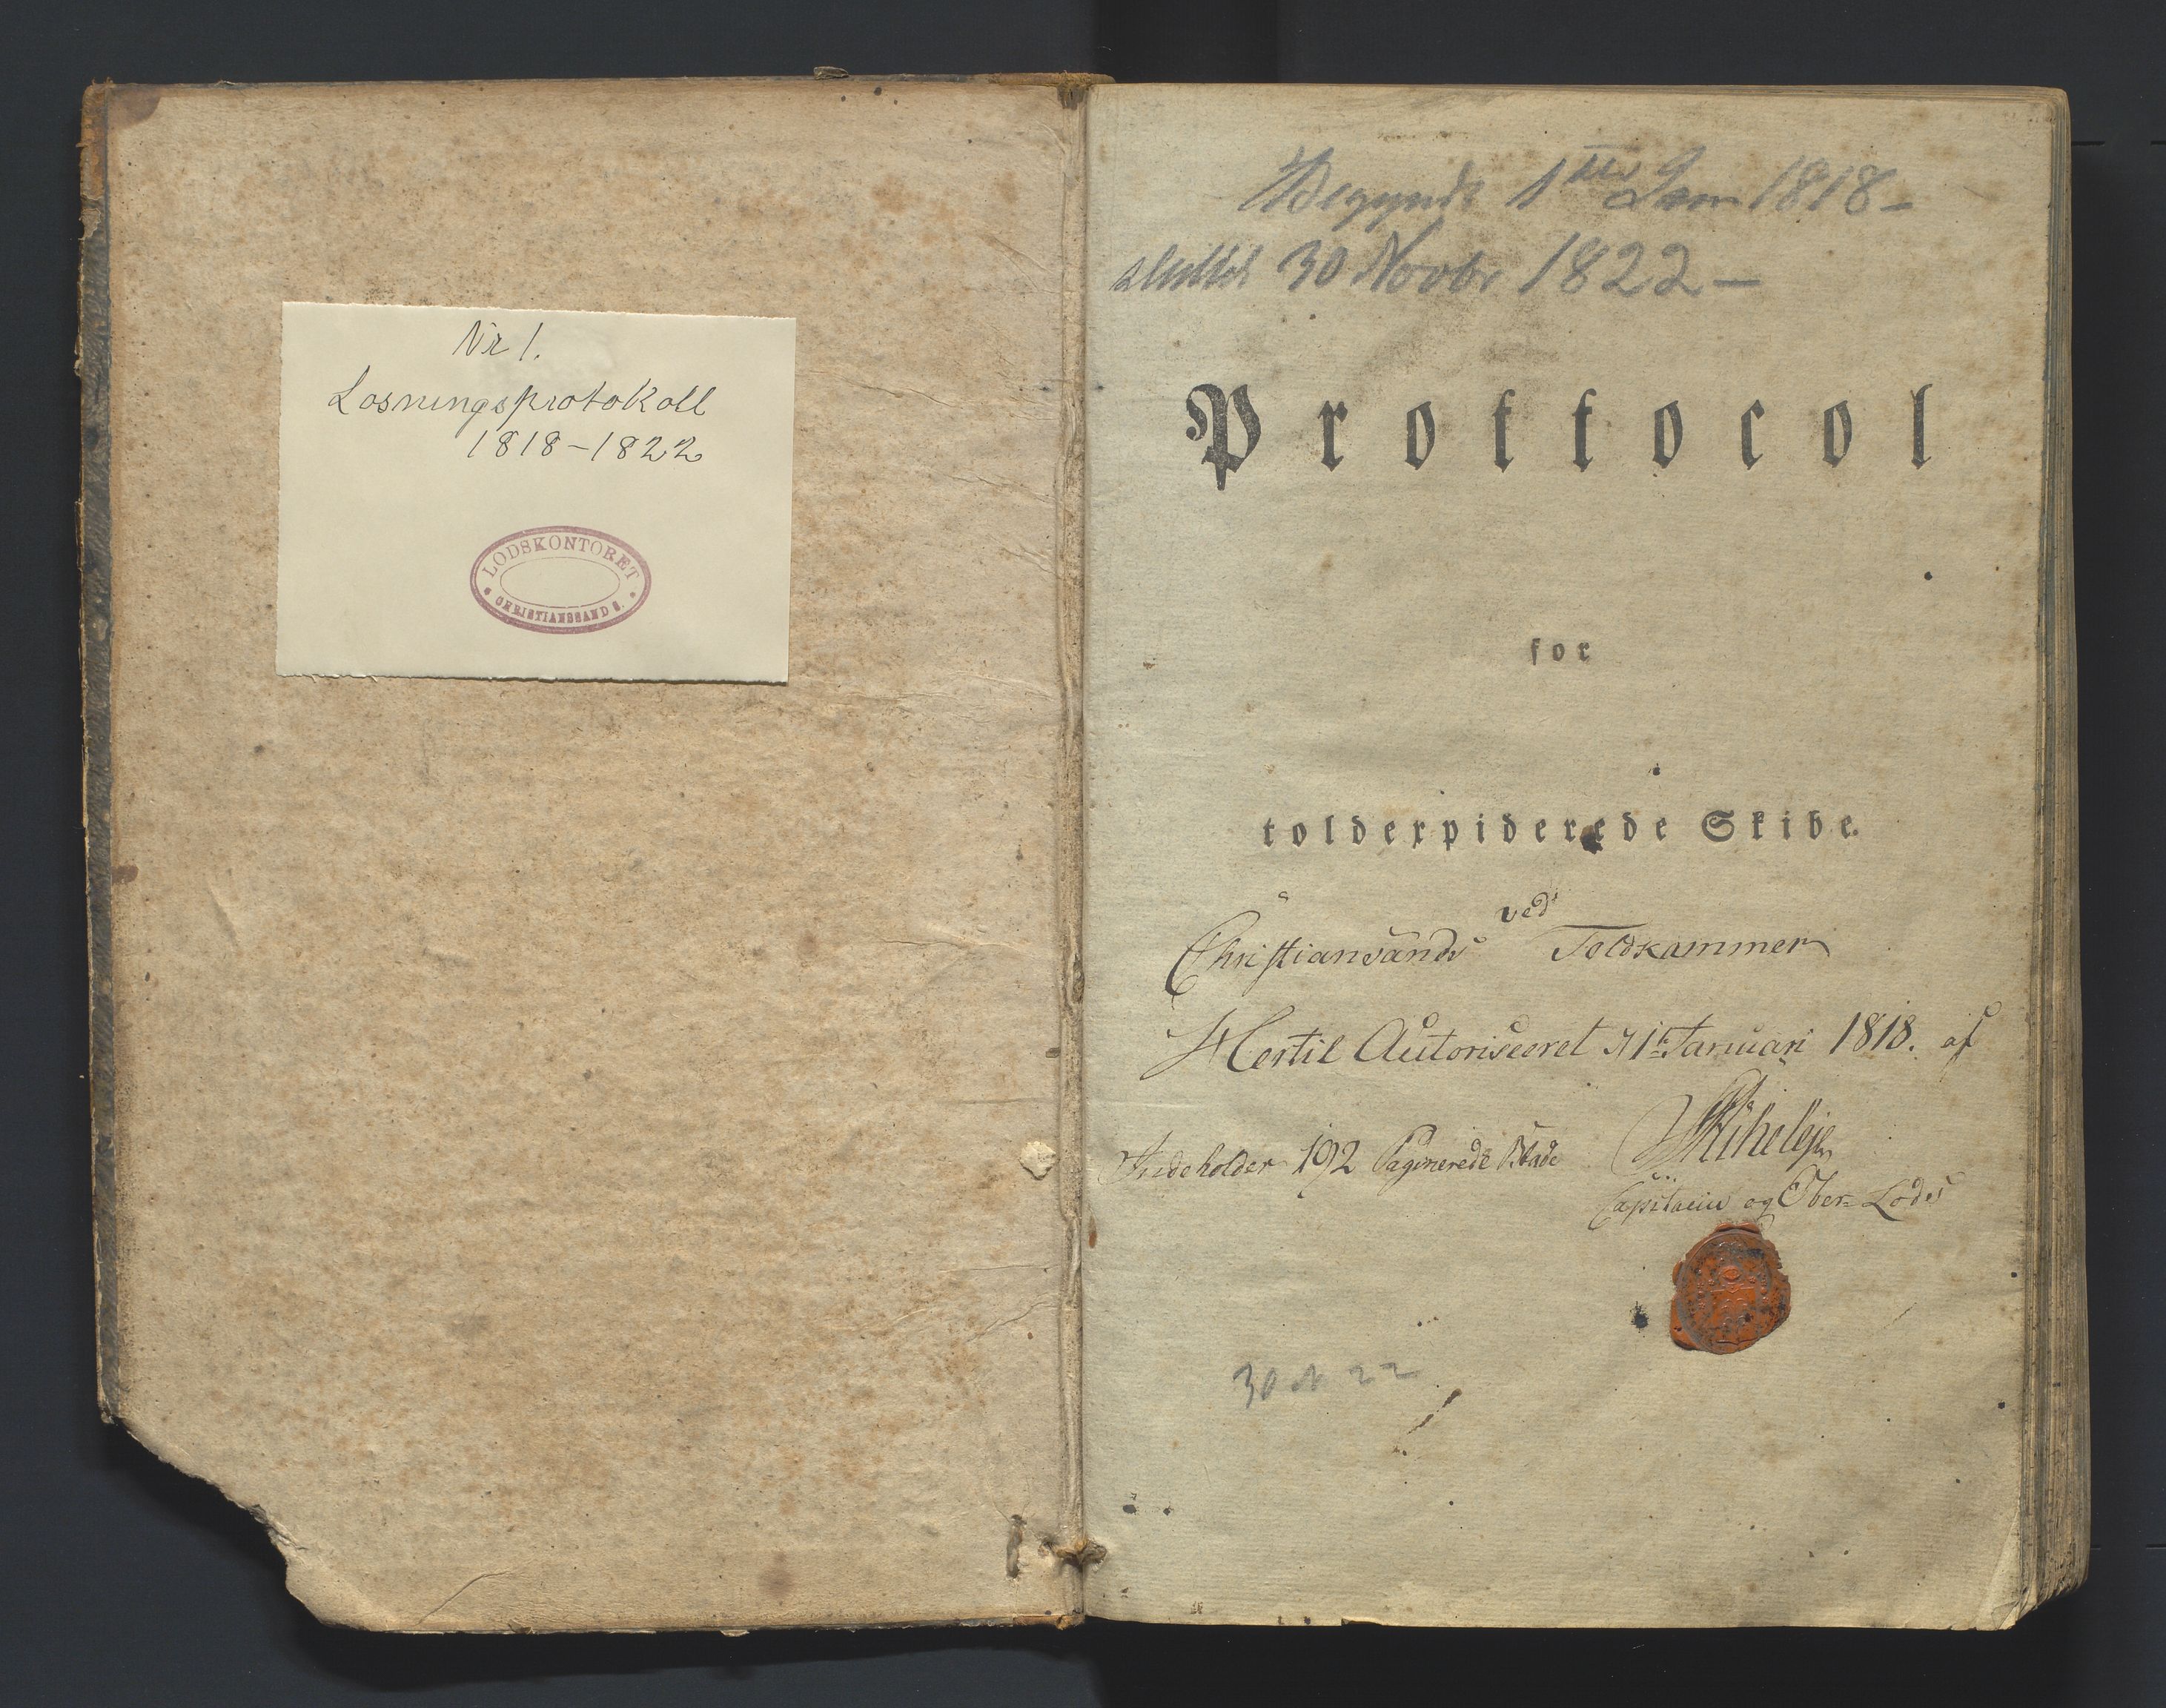 Nr 1.
Losningsprotokoll
1818-1822
LODSKONTORET
CHRISTIANSSAND S.
Begyndt 1ste Jan 1818-
sluttet 30 Novbr 1822-
Prottocol
for
toldexpiderede Skibe.
ved
Christiansands Toldkammer
Hertil Autoriseeret d 1te Januari 1818. af
Indeholder 192 Paginerede Blade
Capitain og Ober-Lods
30 N 22